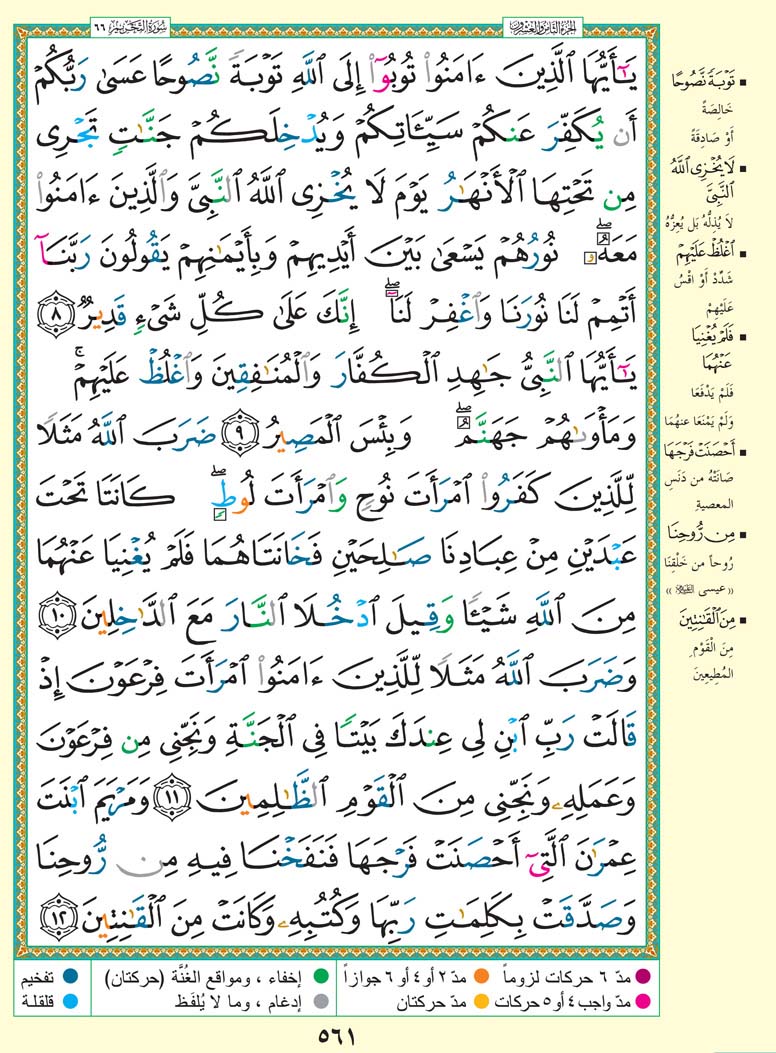 سورة التحريم ٦٦
الجزء الثامن والعشرون
يَـٰٓأَيُّهَا ٱلَّذِينَ ءَامَنُوا۟ تُوبُوٓا۟ إِلَى ٱللَّهِ تَوْبَةً نَّصُوحًا عَسَىٰ رَبُّكُمْ
أَن يُكَفِّرَ عَنكُمْ سَيِّـَٔاتِكُمْ وَيُدْخِلَكُمْ جَنَّـٰتٍ تَجْرِى
مِن تَحْتِهَا ٱلْأَنْهَـٰرُ يَوْمَ لَا يُخْزِى ٱللَّهُ ٱلنَّبِىَّ وَٱلَّذِينَ ءَامَنُوا۟
مَعَهُۥ ۖ نُورُهُمْ يَسْعَىٰ بَيْنَ أَيْدِيهِمْ وَبِأَيْمَـٰنِهِمْ يَقُولُونَ رَبَّنَآ
أَتْمِمْ لَنَا نُورَنَا وَٱغْفِرْ لَنَآ ۖ إِنَّكَ عَلَىٰ كُلِّ شَىْءٍ قَدِيرٌ ٨
يَـٰٓأَيُّهَا ٱلنَّبِىُّ جَـٰهِدِ ٱلْكُفَّارَ وَٱلْمُنَـٰفِقِينَ وَٱغْلُظْ عَلَيْهِمْ ۚ
وَمَأْوَىٰهُمْ جَهَنَّمُ ۖ وَبِئْسَ ٱلْمَصِيرُ ٩ ضَرَبَ ٱللَّهُ مَثَلًا
لِّلَّذِينَ كَفَرُوا۟ ٱمْرَأَتَ نُوحٍ وَٱمْرَأَتَ لُوطٍ ۖ كَانَتَا تَحْتَ
عَبْدَيْنِ مِنْ عِبَادِنَا صَـٰلِحَيْنِ فَخَانَتَاهُمَا فَلَمْ يُغْنِيَا عَنْهُمَا
مِنَ ٱللَّهِ شَيْـًٔا وَقِيلَ ٱدْخُلَا ٱلنَّارَ مَعَ ٱلدَّٰخِلِينَ ١٠
وَضَرَبَ ٱللَّهُ مَثَلًا لِّلَّذِينَ ءَامَنُوا۟ ٱمْرَأَتَ فِرْعَوْنَ إِذْ
قَالَتْ رَبِّ ٱبْنِ لِى عِندَكَ بَيْتًا فِى ٱلْجَنَّةِ وَنَجِّنِى مِن فِرْعَوْنَ
وَعَمَلِهِۦ وَنَجِّنِى مِنَ ٱلْقَوْمِ ٱلظَّـٰلِمِينَ ١١ وَمَرْيَمَ ٱبْنَتَ
عِمْرَٰنَ ٱلَّتِىٓ أَحْصَنَتْ فَرْجَهَا فَنَفَخْنَا فِيهِ مِن رُّوحِنَا
وَصَدَّقَتْ بِكَلِمَـٰتِ رَبِّهَا وَكُتُبِهِۦ وَكَانَتْ مِنَ ٱلْقَـٰنِتِينَ ١٢
▪ تَوْبَةً نَّصُوحًا
خَالِصَةً
أَوْ صَادِقَةً
▪ لَا يُخْزِى ٱللَّهُ
ٱلنَّبِىَّ
لاَ يُذِلُّهُ بَل يُعِزُّهُ
▪ ٱغْلُظْ عَلَيْهِمْ
شَدِّدْ أَوْ اقْسُ
عَلَيْهِمْ
▪ فَلَمْ يُغْنِيَا
عَنْهُمَا
فَلَمْ يَدْفَعَا
وَلَمْ يَمْنَعَا عنهُمَا
▪ أَحْصَنَتْ فَرْجَهَا
صَانَتْهُ من دَنَسِ
المعصيةِ
▪ مِن رُّوحِنَا
رُوحاً من خَلْقِنَا
«عيسى ﷺ»
▪ مِنَ ٱلْقَـٰنِتِينَ
مِنَ الْقَوْمِ
المُطِيعِينَ
مدّ ٦ حركات لزوماً
مدّ ٢ أو ٤ أو ٦ جوازاً
إخفاء ، ومواقع الغُنَّة (حركتان)
تفخيم
مدّ واجب ٤ أو ٥ حركات
مدّ حركتان
إدغام ، وما لا يُلفَظ
قلقلة
٥٦١